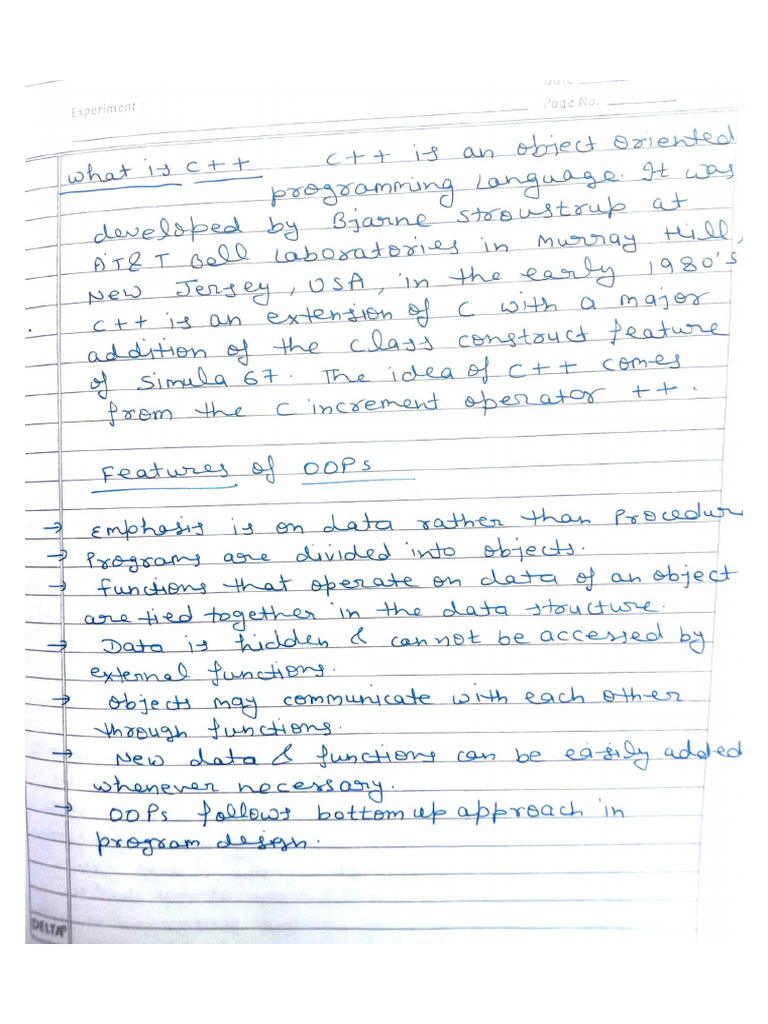 Experiment :
Page No.
What is C++ C++ is an object oriented
programming language. It was
developed by Bjarne Stroustrup at
AT&T Bell Laboratories in Murray Hill,
New Jersey, USA, in the early 1980's
C++ is an extension of C with a major
addition of the class construct feature
of Simula 67. The idea of C++ comes
from the C increment operator ++.
Features of OOPs
→ Emphasis is on data rather than Procedur
→ Programs are divided into objects.
→ functions that operate on data of an object
are tied together in the data structure.
→ Data is hidden & cannot be accessed by
external functions.
→ Objects may communicate with each other
through functions.
→ New data & functions can be easily added
whenever necessary.
→ OOPs follows bottom up approach in
program design.
DELTA